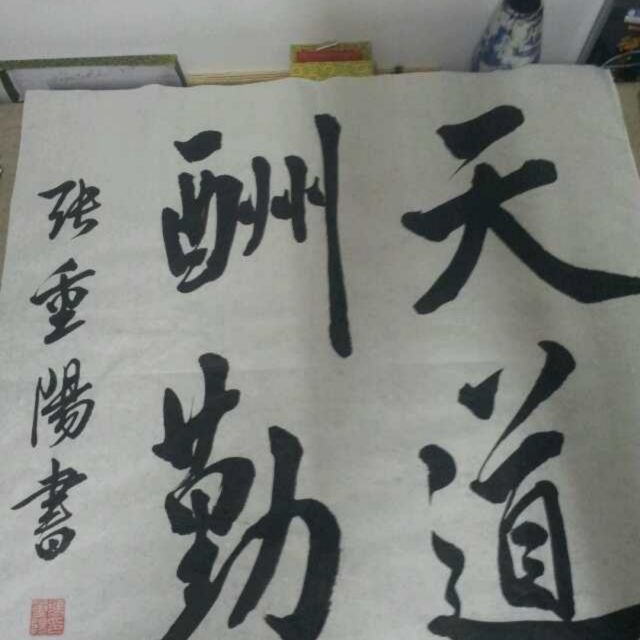 天道
酬勤
张重陽書